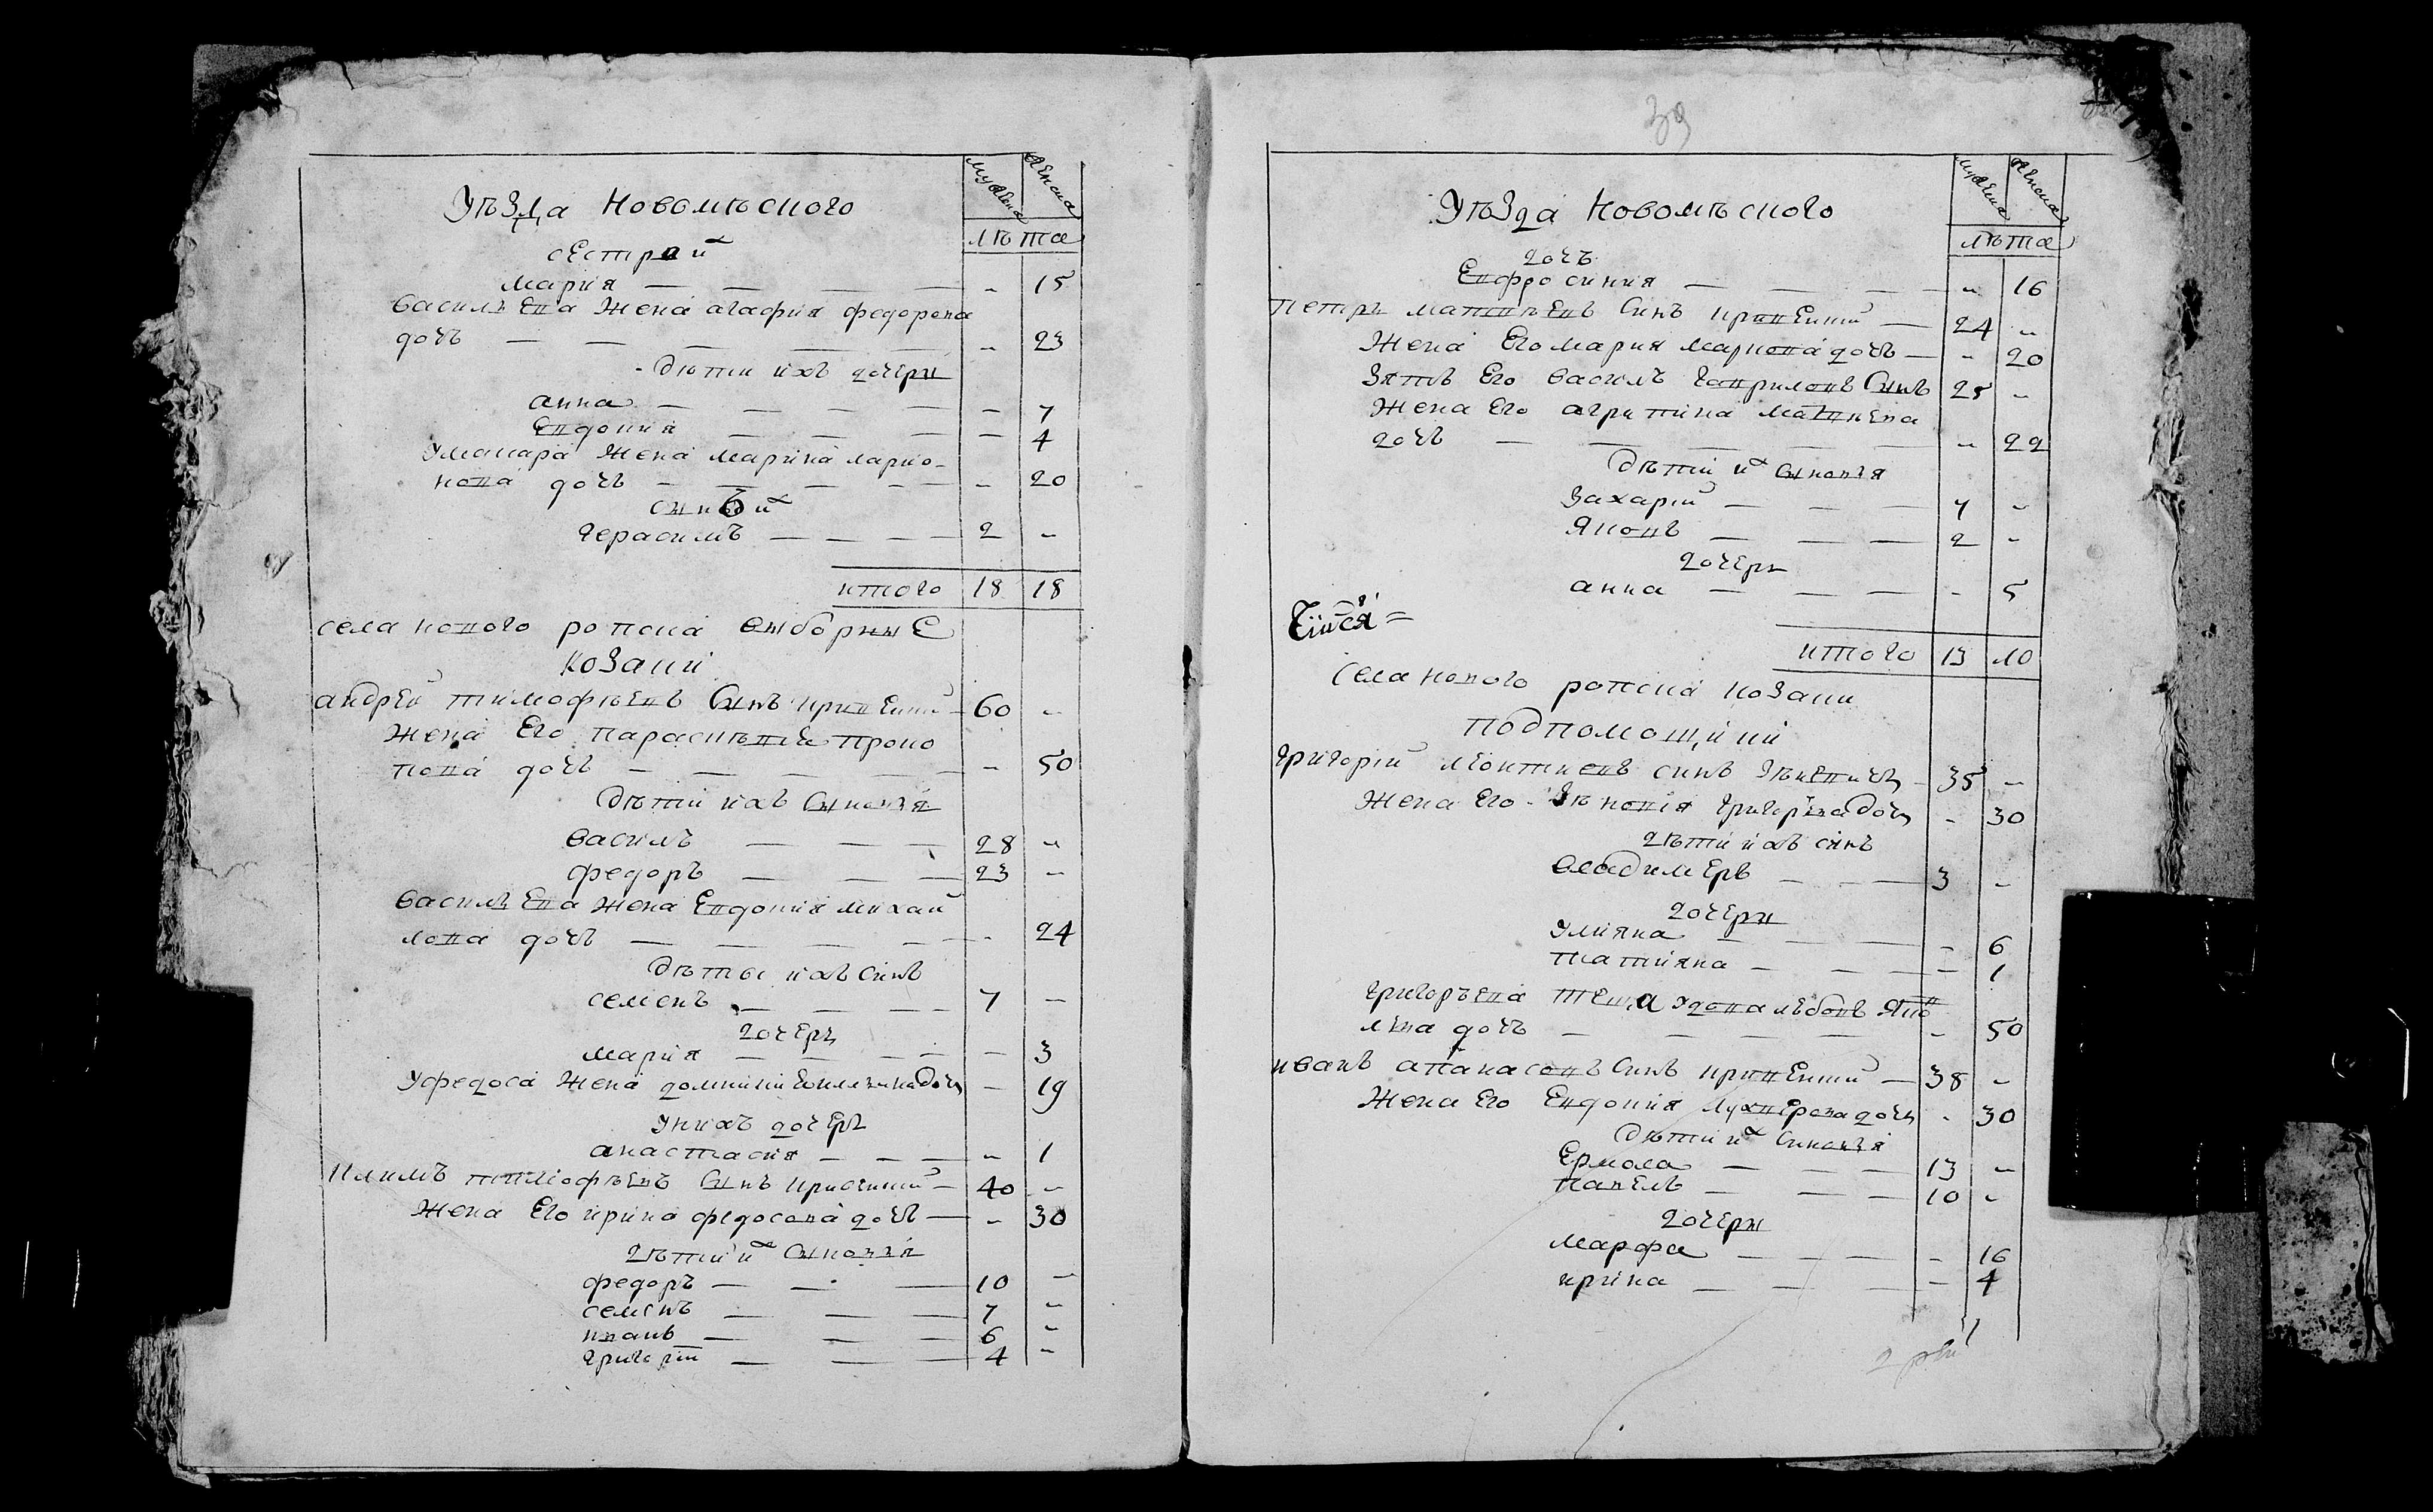 мужска женска
Уѣзда Новомѣского
лѣта
сестра их
Мария — — — — - 15
Василѣева Жена агафия федорова
дочь — — — — - 23
дѣти ихъ дочери
анна — — — — - 7
Евдокия — — — - 4
Умакара Жена Марина ларио-
нова дочь — — — - 20
синъ их
Герасимъ — — — — 2 -
итого 18 18
села нового ропска выборные
козаки
андрей тимофѣевъ Сынъ кривецкий — 60 -
Жена Его параскѣвия проко
пова дочь — — — - 50
дѣти ихъ Сыновя
василь — — — 28 -
федоръ — — — 23 -
василѣева Жена Евдокия михай
лова дочь — — — - 24
дѣты ихъ Синъ
семенъ — — — 7 -
дочеръ
мария — — — - 3
Уфедоса Жена домникия дочъ — 19
Унихъ дочеръ
анастасия — — — - 1
Климъ тимофѣевъ Сынъ кривецкий — 40 -
Жена Его ирина федосова дочъ — - 30
дѣти их Сыновя
федоръ — — — 10 -
семенъ — — — 7 -
иванъ — — — 6 -
григорий — — — 4 -
39
мужска женска
Уѣзда Новомѣского
лѣта
дочъ
Ефросиния — — — - 16
петръ матвѣевъ Синъ кривецкий — 24 -
Жена Его мария маркова дочъ — - 20
Зять Его василь гавриловъ Сынъ 25 -
Жена Его агрипина матвѣева
дочъ — — — — - 22
дѣти их Сыновя
Захарий — — — 4 -
Яковъ — — — 2 -
дочери
анна — — — - 5
итого 13 10
села нового ропска козаки
подпомощики
григорий леонтиевъ синъ — 35 -
Жена Его Зѣновия дочъ - 30
дѣти ихъ синъ
владимеръ — — 3 -
дочери
Улияна — — — - 6
татияна — — — - 1
григоръева теща Удова любовъ яков
лева дочъ — — — — - 50
иванъ апанасовъ Синъ кривецкий — 38 -
Жена Его Евдокия дочъ - 30
дѣти их Синовя
Ермола — — — 13 -
павелъ — — — 10 -
дочери
марфа — — — - 16
ирина — — — - 4